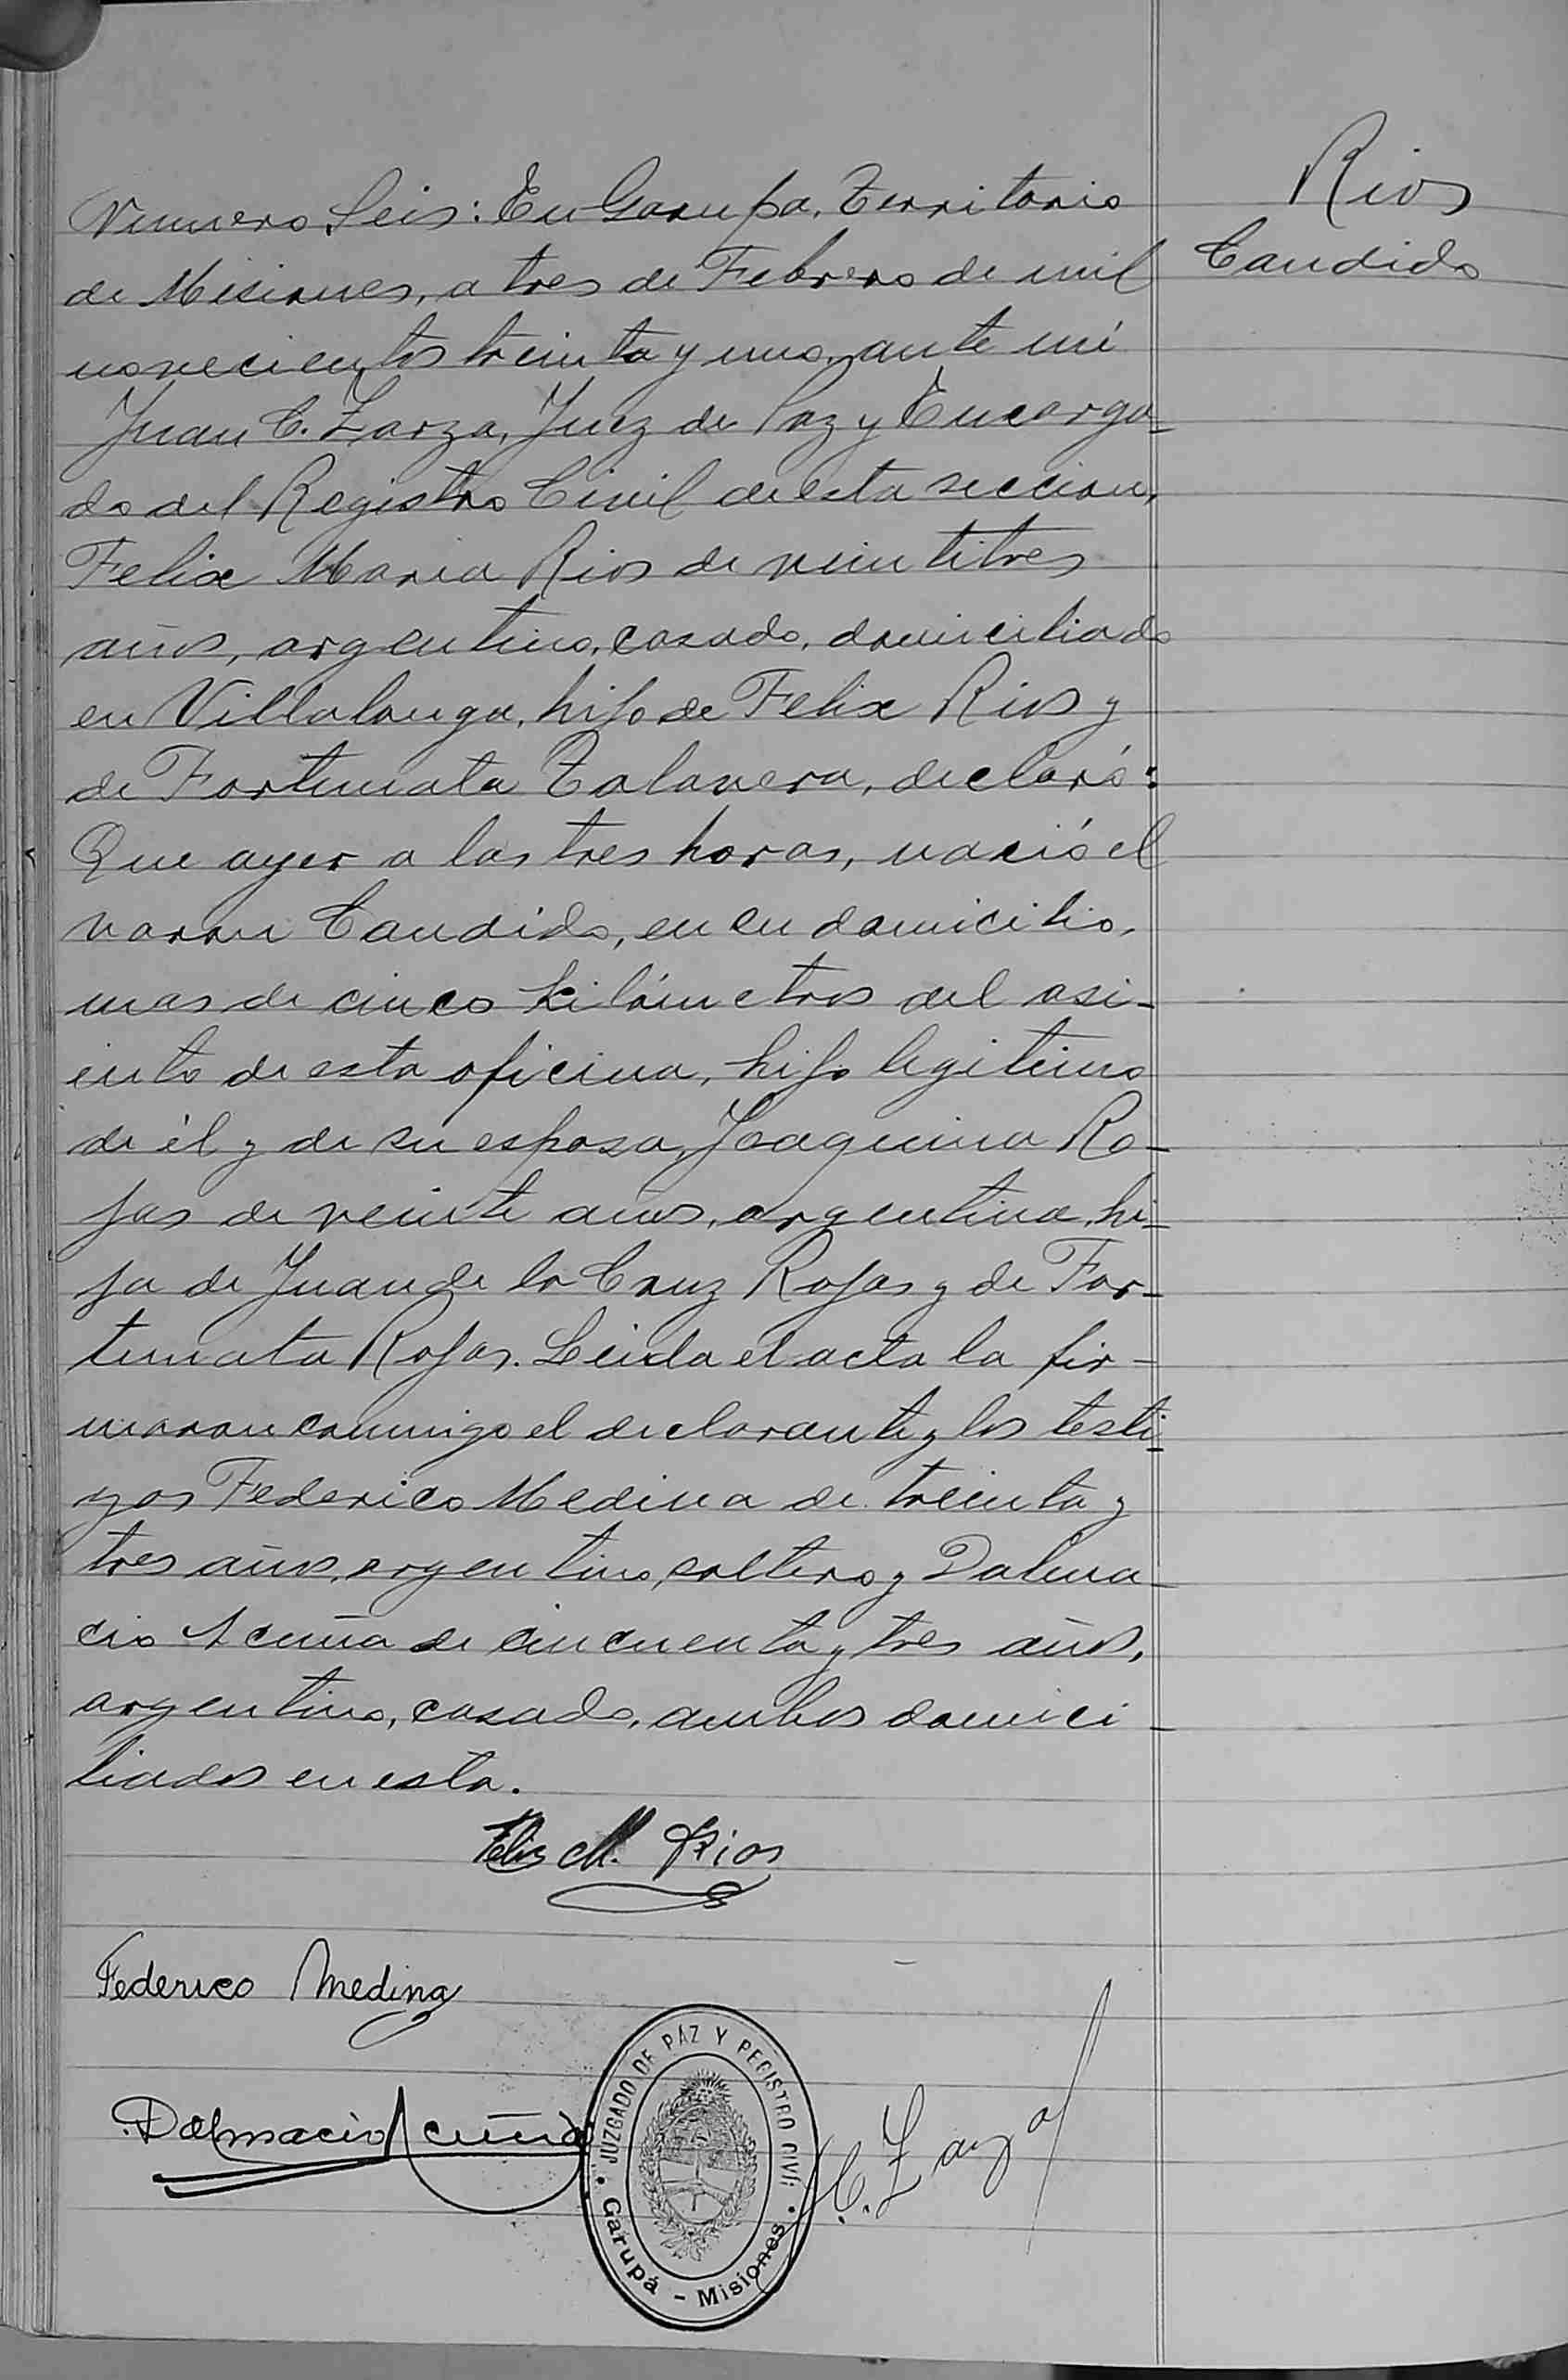 Rios
Candido
Numero Seis: En Garupa, Territorio
de Misiones, a tres de Febrero de mil
novecientos treinta y uno, ante mí
Juan C. Zarza, Juez de Paz y Encarga-
do del Registro Civil de esta seccion,
Felix Maria Rios de veintitres
años, argentino, casado, domiciliado
en Villalonga, hijo de Felix Rios y
de Fortunata Talavera, declaró:
Que ayer a las tres horas, nació el
varon Candido, en su domicilio,
mas de cinco kilómetros del asi-
ento de esta oficina, hijo legitimo
de él y de su esposa, Joaquina Ro-
jas de veinte años, argentina, hi-
ja de Juan de la Cruz Rojas y de For-
tunata Rojas. Leida el acta la fir-
maron conmigo el declarante y los testi-
gos Federico Medina de treinta y
tres años, argentino, soltero y Dalma-
cio Acuña de cincuenta y tres años,
argentino, casado, ambos domici-
liados en esta.
Felix M. Rios
Federico Medina
Dalmacio Acuña
JUZGADO DE PAZ Y REGISTRO CIVIL
Garupá - Misiones
J.C. Zarza